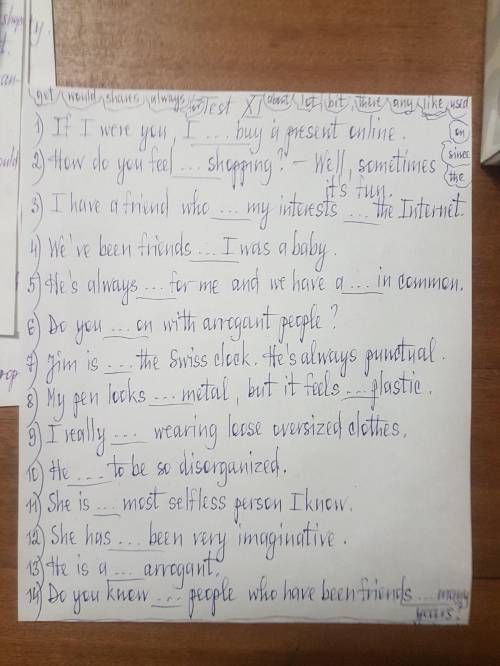 get would shares always for Test XI about lot bit, there any like used
on
since
the
1) If I were you, I ... buy a present online.
2) How do you feel ... shopping? – Well, sometimes
it's fun.
3) I have a friend who ... my interests ... the Internet.
4) We've been friends ... I was a baby.
5) He's always ... for me and we have a ... in common.
6) Do you ... on with arrogant people?
7) Jim is ... the Swiss clock. He's always punctual.
8) My pen looks ... metal, but it feels ... plastic.
9) I really ... wearing loose oversized clothes.
10) He ... to be so disorganized.
11) She is ... most selfless person I know.
12) She has ... been very imaginative.
13) He is a ... arrogant.
14) Do you know ... people who have been friends ... many
years?